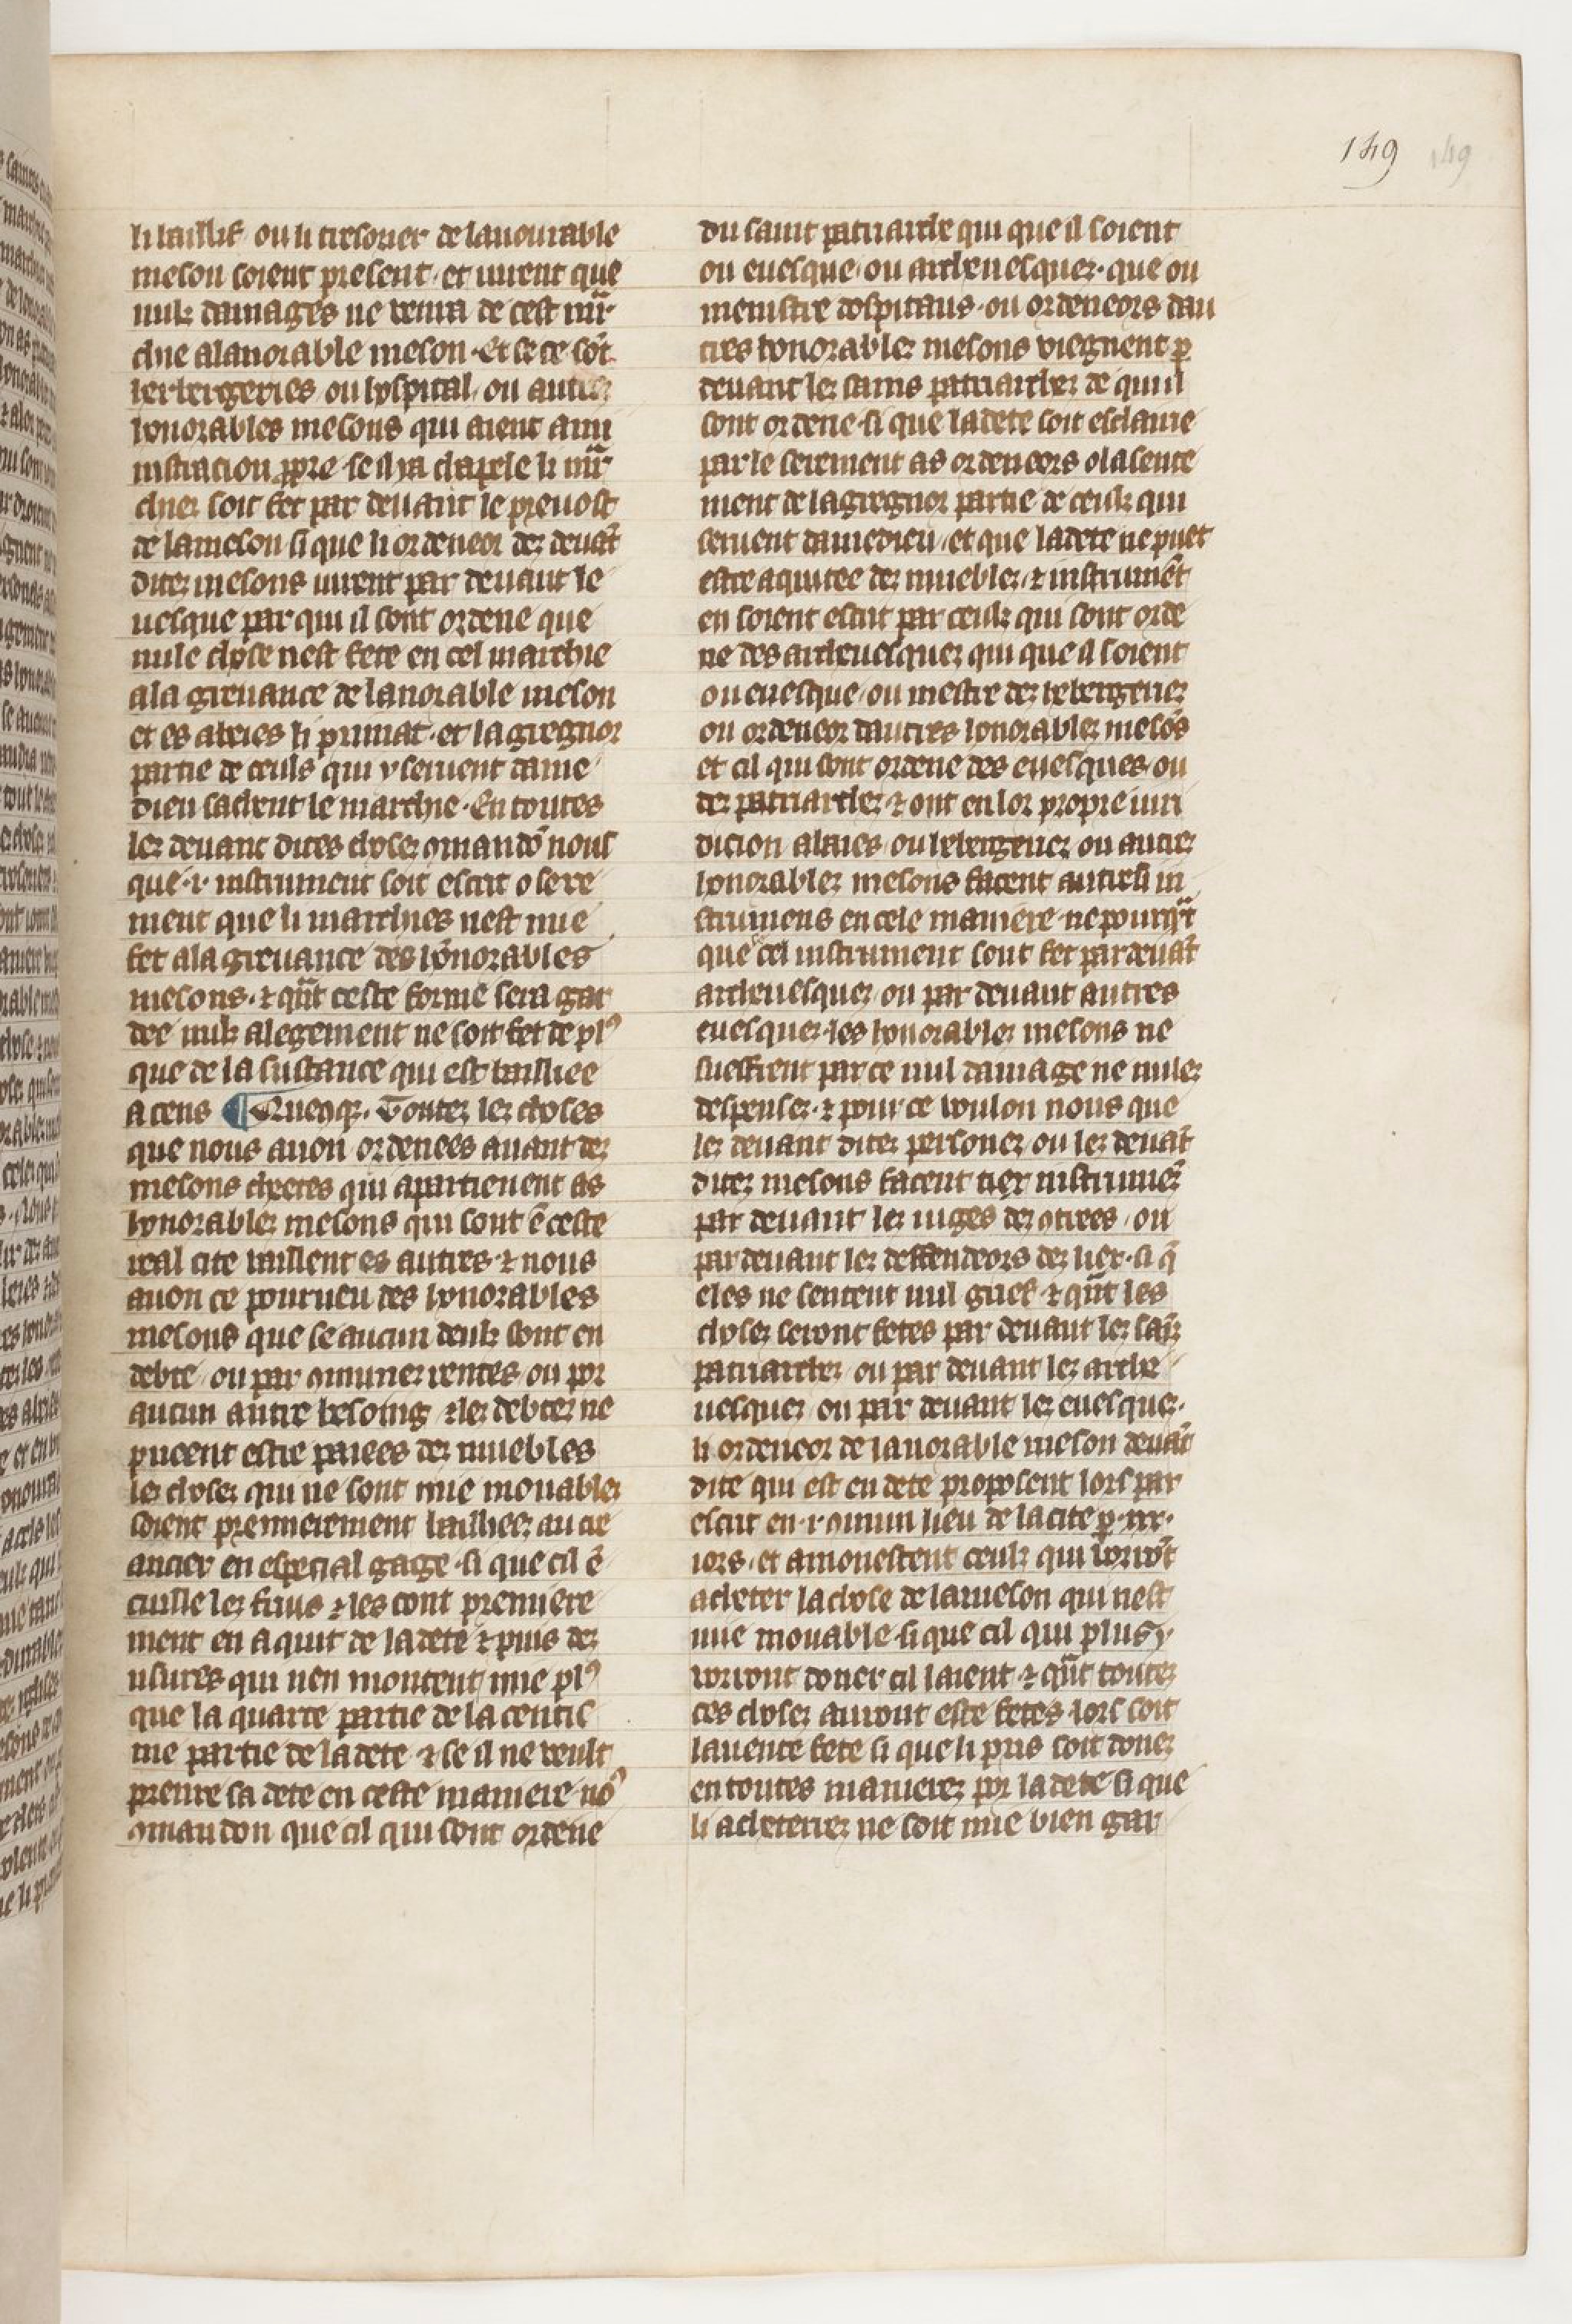 149 149
li baillif ou li tresorier de lanourable
meson soient present et iurent que
nulz damages ne venra de cest mar
chie a lanorable meson. Et se ce sōt
herbergeries ou hospital ou autres
honorables mesons qui aient ami
nistracion ꝓpre se il ya chapele li mar
chiez soit fet par deuant le preuost
de la meson si que li ordeneor dez deuāt
ditez mesons iurent par deuant le
uesque par qui il sont ordene que
nule chose nest fete en cel marchie
a la greuance de lanorable meson
et es abeies li primat et la gregnor
partie de ceuls qui y seruent dame
dieu sachent le marchie. En toutes
lez deuant dites chosez 9mandō nous
que .i. instrument soit escrit o sere
ment que li marchies nest mie
fet a la greuance des honorables
mesons. ⁊ qn̄t ceste forme sera gar
dee nulz alegement ne soit fet de plꝰ
que de la sustance qui est bailliee
a cens ¶ Quenqz. Toutez lez choses
que nous auon ordenees auant dez
mesons cheetes qui apartienent as
honorablez mesons qui sont ē ceste
real cite vaillent es autres ⁊ nous
auon ce pourueu des honorables
mesons que se aucun deulz sont en
debte ou par 9munez rentes ou por
aucun autre besoing ⁊ lez debtez ne
pueent estre paiees dez muebles
lez chosez qui ne sont mie mouablez
soient premierement bailliees au cre
ancier en especial gage si que cil ē
cuille lez fruis ⁊ les cont premiere
ment en aquit de la dete ⁊ puis dez
usures qui nen montent mie plꝰ
que la quarte partie de la centis
me partie de la dete ⁊ se il ne veult
prenre sa dete en ceste maniere noꝰ
9mandon que cil qui sont ordene
du saint patriarche qui que il soient
ou euesque ou archeuesquez. que ou
menistre dospitaus ou ordeneors dau
tres honorablez mesons viegnent ꝑ
deuant lez sains patriarchez de qui il
sont ordene si que la dete soit esclairie
par le serement as ordeneors o lasente
ment de la gregnor partie de ceulz qui
seruent damedieu et que la dete ne puet
estre aquitee dez mueblez. ⁊ instrumēt
en soient escrit par ceulz qui sont orde
ne des archeuesquez qui que il soient
ou euesque ou mestre dez hebergeriez
ou ordeneor dautres honorablez mesōs
et cil qui sont ordene des euesques ou
dez patriarchez ⁊ ont en lor propre iuri
dicion abaies ou hebergeriez ou autrez
honorablez mesons facent autresi in
strumens en cele maniere ne pourqn̄t
que cel instrument sont fet par deuāt
archeuesquez ou par deuant autres
euesquez. les honorablez mesons ne
sueffrent par ce nul damage ne nulez
despensez. ⁊ pour ce voulon nous que
lez deuant ditez personez ou lez deuāt
ditez mesons facent tiex instrumēz
par deuant lez iuges dez 9trees ou
par deuant lez deffendeors dez liex. si q̄
eles ne sentent nul grief ⁊ qn̄t les
chosez seront fetes par deuant lez sais
patriarchez ou par deuant lez arche
uesquez ou par deuant lez euesquez.
li ordeneor de lanorable meson deuāt
dite qui est en dete proposent lors par
escrit en .i. 9mun lieu de la cite ꝑ .xx.
iors. et amonestent ceulz qui vorrōt
acheter la chose de la meson qui nest
mie mouable si que cil qui plus y
vorront doner cil laient ⁊ qn̄t toutez
ces chosez auront este fetes lors soit
la uente fete si que li pris soit donez
en toutes manierez por la dete si que
li acheterrez ne soit mie bien gar